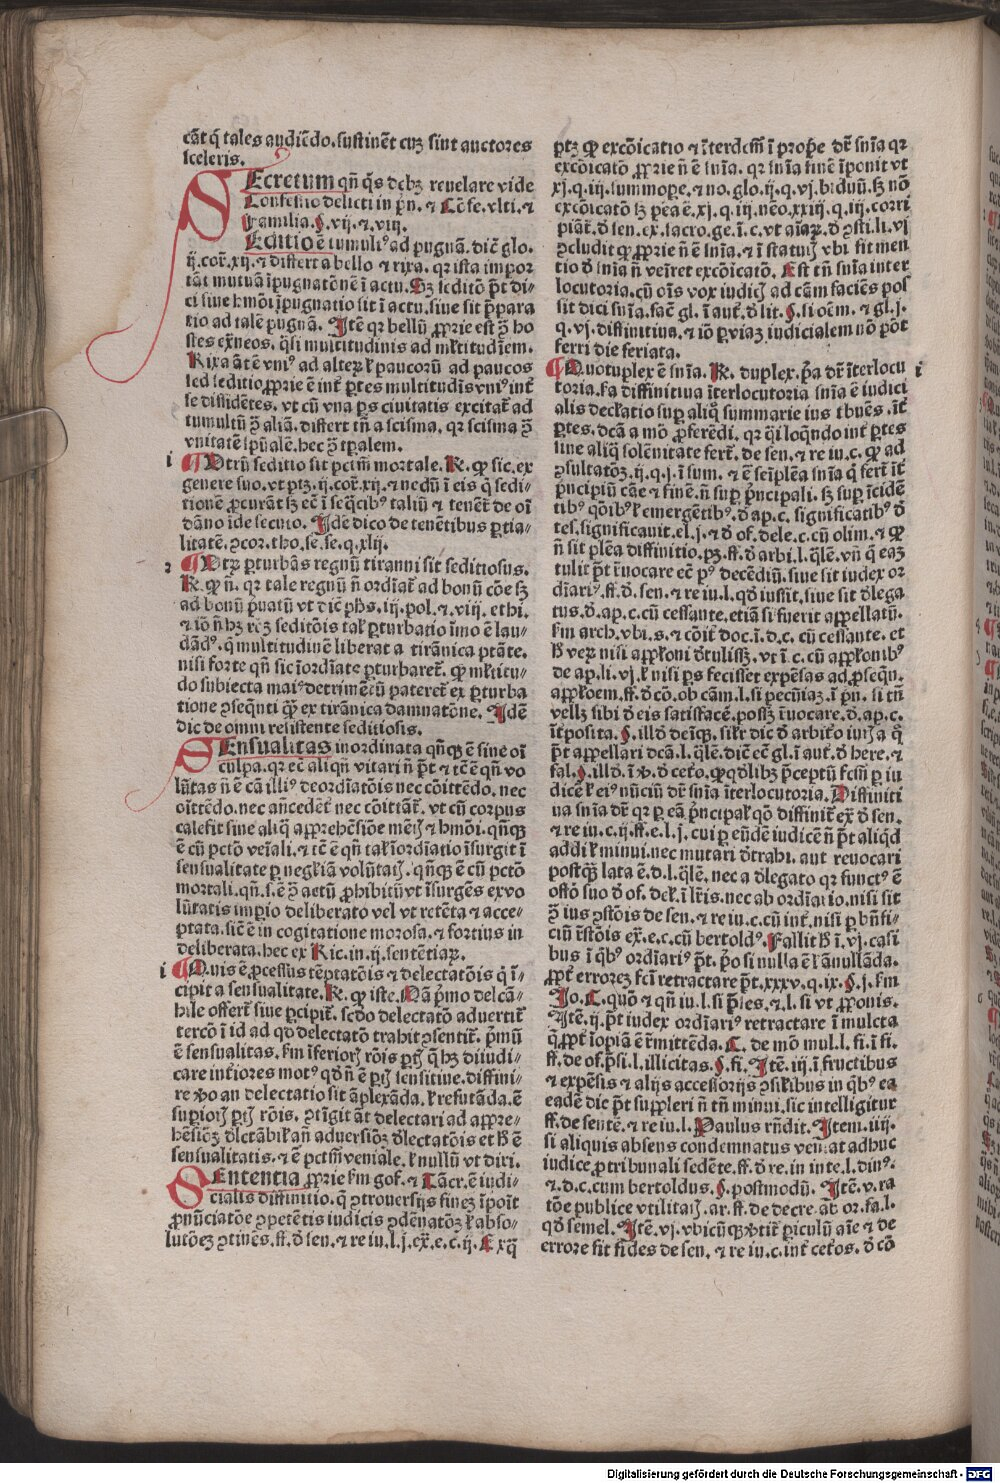 cāt q̄ tales audiēdo. sustinēt cuȝ sint auctores
sceleris.
SEcretum qn̄ q̄s debȝ reuelare vide
Confessio delicti in p̄n. ⁊ Cōfe. vlti. ⁊
Familia. §. vij. ⁊. viij.
SEditio ē tumulꝰ ad pugnā. dic̄ glo.
ij. cor̄. xij. ⁊ differt a bello ⁊ rixa. qr ista impor
tāt mutuā īpugnatōnē ī actu. Sȝ seditō p̄t di⸗
ci siue hmōi īpugnatio sit ī actu. siue sit p̄para
tio ad talē pugnā. Itē qr bellū ꝓprie est ꝯ̄ ho
stes ex̄neos. q̄si multitudinis ad ml̄titudīem.
Rixa āt ē vniꝰ ad alterꝝ ł paucorū ad paucos
sed seditio ꝓprie ē int̄ ꝑtes multitudīs vniꝰ int̄
se dissidētes. vt cū vna ꝑs ciuitatis excitat̄ ad
tumultū ꝯ̄ aliā. differt tn̄ a scisma. qr scisma ꝯ̄
vnitatē spūalē. hec ꝯ̄ tꝑalem.
i ¶ Utrū seditio sit pctm̄ mortale. R. ꝙ sic. ex
genere suo. vt ptȝ. ij. cor̄. xij. ⁊ nedū ī eis q̄ sedi⸗
tionē ꝓcurāt sȝ ec̄ ī seq̄cibꝰ taliū ⁊ tenet̄ de oī
dāno īde secuto. Idē dico de tenētibus ꝑtia⸗
litatē. ꝯcor. tho. se. se. q. xlij.
2 ¶ Utꝝ ꝑturbās regnū tiranni sit seditiosus.
R. ꝙ n̄. qr tale regnū n̄ ordīat̄ ad bonū cōe sȝ
ad bonū p̄uatū vt dic̄ ph̄s. iij. pol. ⁊. viij. ethi.
⁊ iō n̄ hȝ rōȝ seditōis tał ꝑturbatio īmo ē lau⸗
dādꝰ. q̄ multitudinē liberat a tirānica ptāte.
nisi forte qn̄ sic īordīate ꝑturbaret̄. ꝙ ml̄titu⸗
do subiecta maiꝰ detrimētū pateret̄ ex ꝑturba
tione ꝯseq̄nti q̄ȝ ex tirānica damnatōne. Idē
dic de omni resistente seditiosis.
SEnsualitas inordinata qn̄qȝ ē sine oī
culpa. qr ec̄ aliqn̄ vitari n̄ p̄t ⁊ tc̄ ē qn̄ vo
lūtas n̄ ē cā illiꝰ deordiatōis nec cōittēdo. nec
oīttēdo. nec an̄cedēt̄ nec cōittāt̄. vt cū corpus
calefit sine aliq̄ apprehēsiōe mētꝭ ⁊ hmōi. qn̄qȝ
ē cū pctō veīali. ⁊ tc̄ ē qn̄ tał īordīatio īsurgit ī
sensualitate ꝑ neglīam volūtatꝭ. qn̄qȝ ē cū pctō
mortali. qn̄. s. ē ꝯ̄ actū ꝓhibitū vt īsurgēs ex vo
lūtatis imꝑio deliberato vel vt retēta ⁊ acce⸗
ptata. sic̄ ē in cogitatione morosa. ⁊ fortius in
deliberata. hec ex Ric. in. ij. sentētiaꝝ.
i ¶ Quis ē ꝓcessus tēptatōis ⁊ delectatōis q̄ ī⸗
cipit a sensualitate. R. ꝙ iste. Nā p̄mo delcā⸗
bile offert̄ siue ꝑcipit̄. scdo delectatō aduertit̄
tercō ī id ad qd delectatō trahit ꝯsentit̄. p̄mū
ē sensualitas. ẜm īferiorꝭ rōis ꝑtꝭ q̄ hȝ diiudi⸗
care int̄iores motꝰ qd n̄ ē ꝑtꝭ sensitiue. diffini⸗
re ꝟo an delectatio sit āplexāda. ł refutāda. ē
suꝑiorꝭ ꝑtꝭ rōis. ꝯtīgit āt delectari ad appre⸗
hēsiōȝ dl̄ctābił an̄ aduersiōȝ dlectatōis et ħ ē
sensualitatis. ⁊ ē pctm̄ veniale. ł nullū vt dixi.
SEntentia ꝓprie ẜm gof. ⁊ Tācr. ē iudi⸗
cialis diffinitio. q̄ ꝯtrouersijs fineȝ īpoit̄
ꝓnūciatōe ꝯpetētis iudicis ꝯdēnatōȝ ł abso⸗
lutōeȝ ꝯtinēs. ff. đ sen. ⁊ re iu. l. j. ex̄. e. c. ij. Ex q̄
ptȝ ꝙ excōicatio ⁊ īterdcm̄ ī proṗe dr̄ snīa qr
excōicatō ꝓprie n̄ ē snīa. qr snīa finē īponit vt
xj. q. iij. summoꝑe. ⁊ no. glo. ij. q. vj. biduū. sȝ nō
excōicatō sȝ pēa ē. xj. q. iij. nēo. xxiij. q. iij. corri
piāt̄. đ sen. ex. sacro. ge. ī. c. vt aīaꝝ. đ ꝯsti. li. vj
ꝯcludit ꝙ ꝓprie n̄ ē snīa. ⁊ ī statutꝭ vbi fit men
tio đ snīa n̄ veīret excōicatō. Est tn̄ snīa inter
locutoria. cū oīs vox iudicꝭ ad cām faciēs pos
sit dici snīa. fac̄ gl. ī aut̄. đ lit. §. si oēm. ⁊ gl. j.
q. vj. diffinitiua. ⁊ iō ꝑ viaȝ iudicialem nō pōt
ferri die feriata.
¶ Quotuplex ē snīa. R. duplex. p̄a dr̄ īterlocu i
toria. ẜa diffinitiua īterlocutoria snīa ē iudici
alis declātio suꝑ aliq̄ summarie ius tbuēs. īt̄
ꝑtes. dcā a mō ꝓferēdi. qr q̄i loq̄ndo int̄ ꝑtes
sine aliq̄ solēnitate fert̄. đ sen. ⁊ re iu. c. ꝙ ad
ꝯsultatōȝ. ij. q. j. ī sum. ⁊ ē seīplēa snīa q̄ fert̄ īt̄
p̄ncipiū cāe ⁊ finē. n̄ suꝑ p̄ncipali. sȝ suꝑ īcidē
tibꝰ qōibꝰ ł emergētibꝰ. đ ap. c. significatibꝰ đ
tes. significauit. el. j. ⁊ đ of. dele. c. cū olim. ⁊ ꝙ
n̄ sit plēa diffinitio. pȝ. ff. đ arbi. l. q̄lē. vn̄ q̄ eaȝ
tulit p̄t r̄uocare ec̄ pꝰ decēdiū. siue sit iudex or
dīariꝰ. ff. đ. sen. ⁊ re iu. l. qđ iussit. siue sit đlega
tus. đ. ap. c. cū cessante. etiā si fuerit appellatū.
ẜm arch. vbi. s. ⁊ cōit̄ doc. ī. d. c. cū cessante. et
ħ veꝝ nisi appłoni đtulissȝ. vt ī. c. cū appłonibꝰ
de ap. li. vj. ł nisi ꝑs fecisset expēsas ad ꝓseqn̄.
appłoem. ff. đ cō. ob cām. l. si pecūiaȝ. ī p̄n. si tn̄
vellȝ sibi đ eis satisfacē. possȝ r̄uocare. đ. ap. c.
īt̄posita. §. illđ deīqȝ. sił̄r dic đ arbit̄o iuris a q̄
p̄t appellari dcā. l. q̄lē. dic̄ ec̄ gl. ī aut̄. đ here. ⁊
fal. §. illđ. ī ꝟ. đ cet̄o. ꝙ qđlibȝ p̄ceptū fcm̄ ꝑ iu
dicē ł ei nūciū dr̄ snīa īterlocutoria. Diffiniti
ua snīa dr̄ qr ꝑ eā p̄ncipał qō diffinit̄ ex̄ đ sen.
⁊ re iu. c. ij. ff. e. l. j. cui ꝑ eūdē iudicē n̄ p̄t aliqđ
addi ł minui. nec mutari đtrahi. aut reuocari
postqȝ lata ē. d. l. q̄lē. nec a đlegato qr functꝰ ē
offō suo đ of. del. ī lr̄is. nec ab ordīario. nisi sit
ꝯ̄ ius ꝯstōis de sen. ⁊ re iu. c. cū int̄. nisi ꝑ bn̄fi⸗
ciū ī̄stōis ex̄. e. c. cū bertoldꝰ. Fallit ħ ī. vj. casi
bus ī q̄bꝰ ordīariꝰ p̄t. p̄o si nulla ē ł ānullāda.
ꝓpt̄ erroreȝ fcī retractare p̄t. xxxv. q. ix. §. j. ẜm
Jo. C. quō ⁊ qn̄ iu. l. si p̄les. ⁊. l. si vt ꝓponis.
Itē. ij. p̄t iudex ordīariꝰ retractare ī mulcta
q̄ ꝓpt̄ īopiā ē r̄mittēda. C. de mō mul. l. fi. ī fi.
ff. de of. p̄si. l. illicitas. §. fi. Itē. iij. ī fructibus
⁊ expēsis ⁊ alijs accessorijs ꝯsiłibus in q̄bꝰ ea
eadē dic p̄t suppleri n̄ tn̄ minui. sic intelligitur
ff. de sentē. ⁊ re iu. l. Paulus rn̄dit. Item. iiij.
si aliquis absens condemnatus veniat adhuc
iudice ꝓ tribunali sedēte. ff. đ re. in inte. l. diuꝰ.
⁊. d. c. cum bertoldus. §. postmodū. Itē. v. ra
tōe publice vtilitatꝭ. ar. ff. de decre. ab or. fa. l.
qđ semel. Itē. vj. vbicūqȝ ꝟtit̄ ꝑiculū aīe ⁊ de
errore fit fides de sen. ⁊ re iu. c. int̄ cet̄os. đ cō
Digitalisierung gefördert durch die Deutsche Forschungsgemeinschaft - DFG